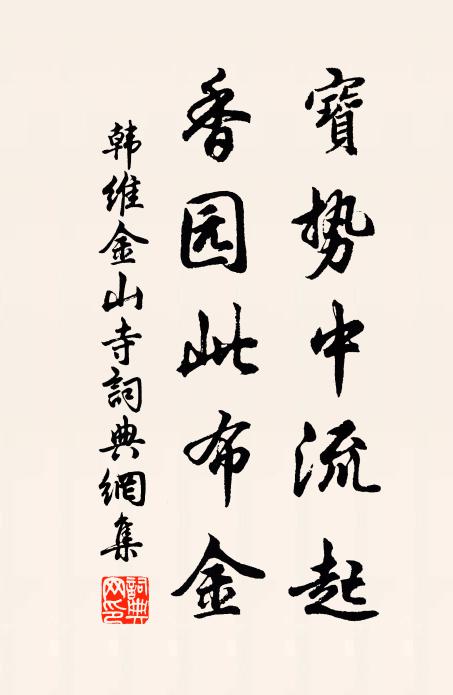 寶势中流起
香园此布金
韩维金山寺詞典網集
詞典网印